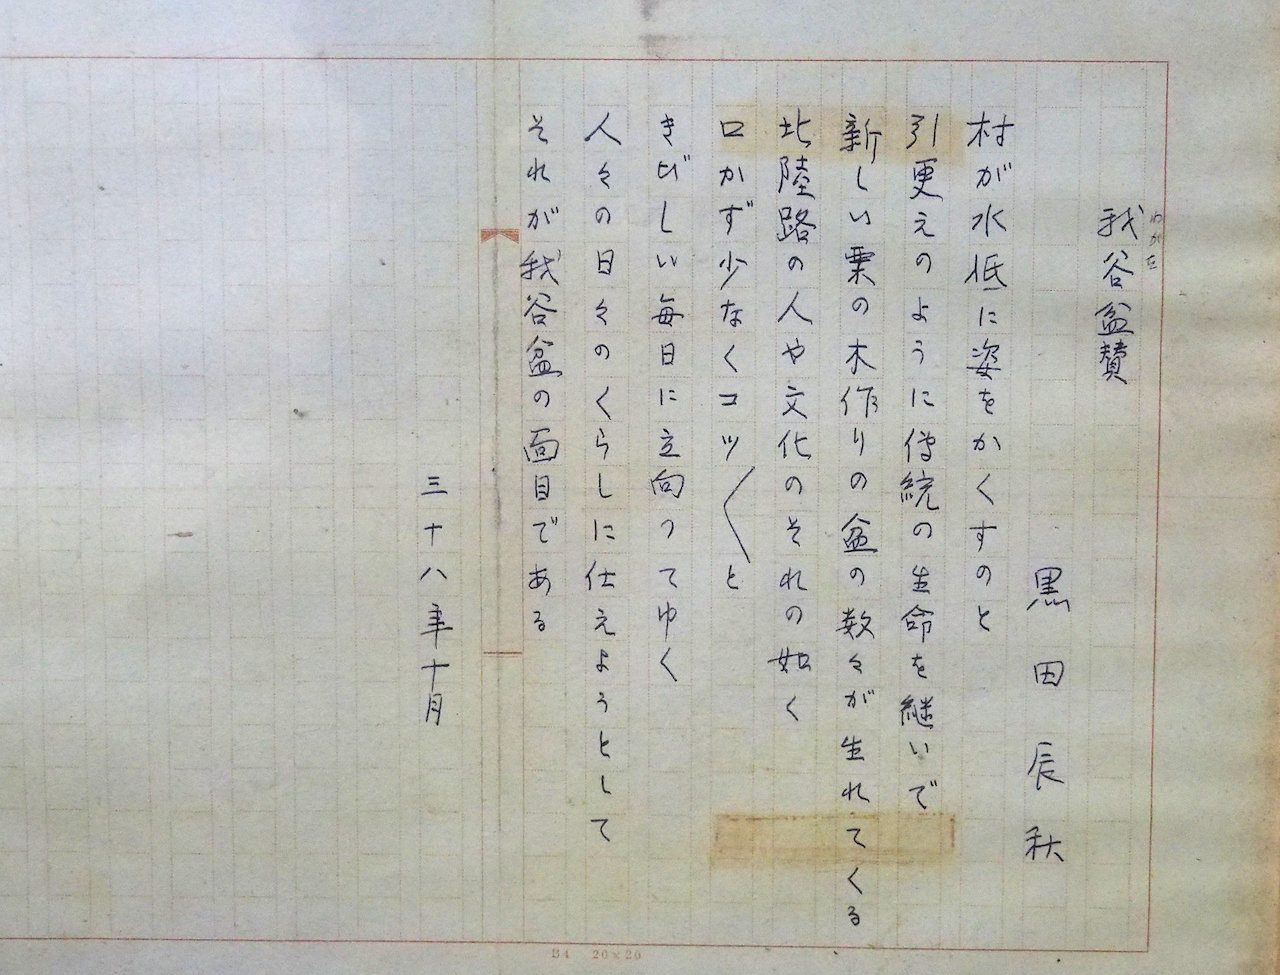 我谷盆賛
わがた
黒田辰秋
村が水低に姿をかくすのと
引更えのように傳統の生命を継いで
新しい栗の木作りの盆の数々が生れてくる
北陸路の人や文化のそれの如く
口かず少なくコツ〱と
きびしい毎日に立向つてゆく
人々の日々のくらしに仕えようとして
それが我谷盆の面目である
三十八年十月
B4 20×20